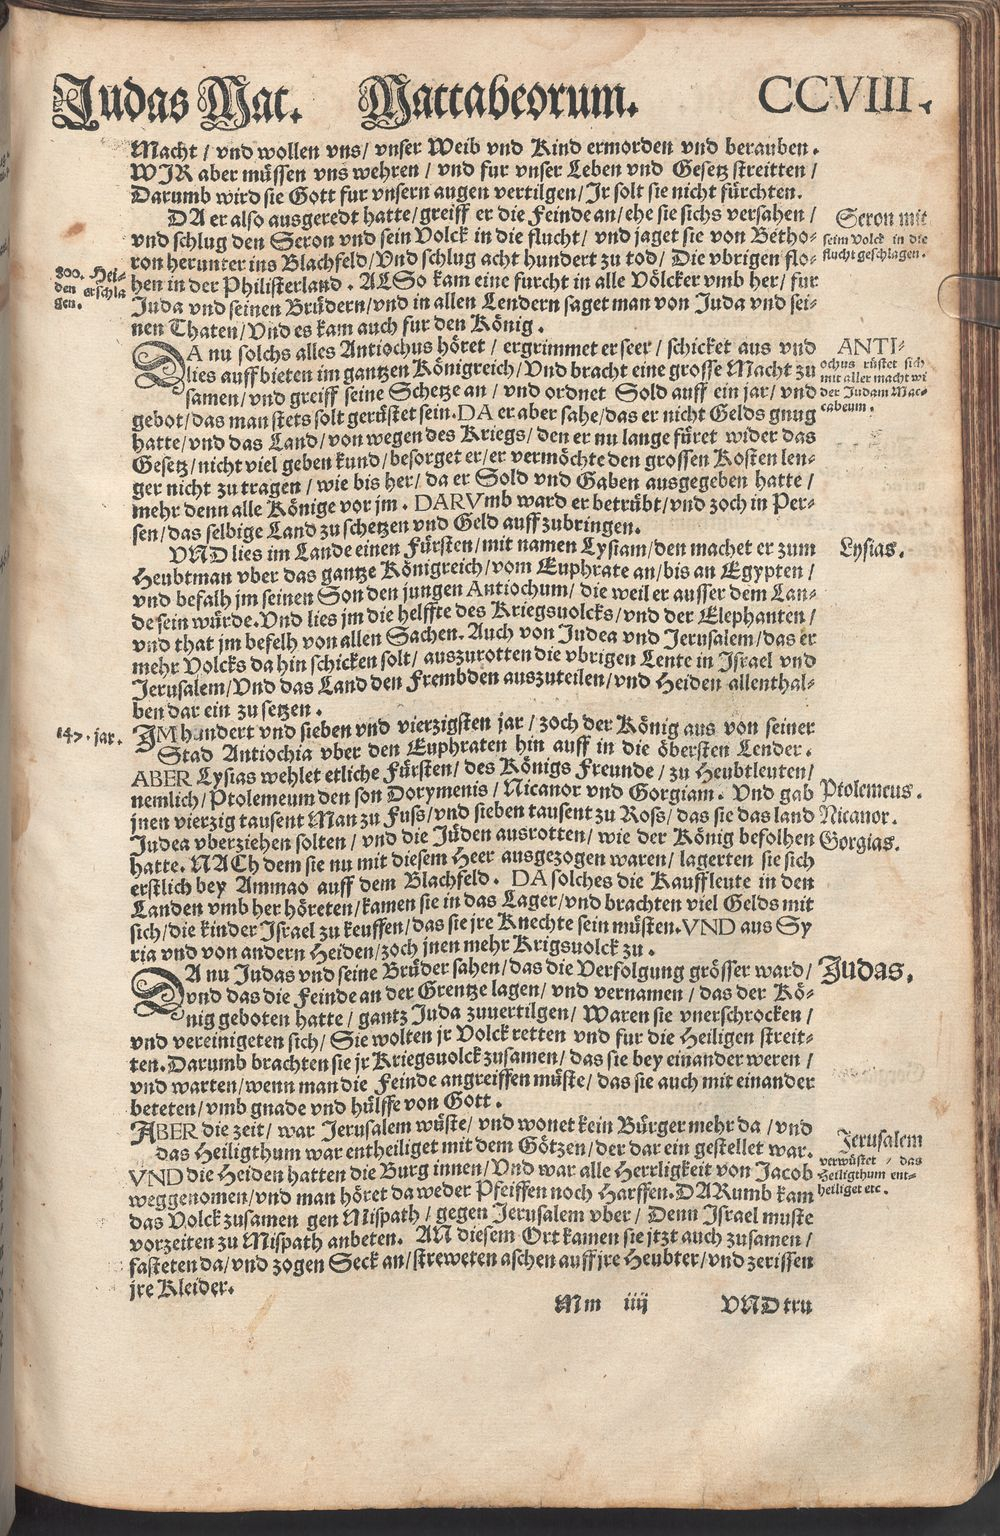 Judas Mac. Maccabeorum. CCVIII.
Macht / vnd wollen vns / vnser Weib vnd Kind ermorden vnd berauben.
WIR aber müssen vns wehren / vnd fur vnser Leben vnd Gesetz streitten /
Darumb wird sie Gott fur vnsern augen vertilgen / Jr solt sie nicht fürchten.
DA er also ausgeredt hatte / greiff er die Feinde an / ehe sie sichs versahen /
vnd schlug den Seron vnd sein Volck in die flucht / vnd jaget sie von Betho-
ron herunter ins Blachfeld / Vnd schlug acht hundert zu tod / Die vbrigen flo-
hen in der Philisterland. ALSo kam eine furcht in alle Völcker vmb her / fur
Juda vnd seinen Brüdern / vnd in allen Lendern saget man von Juda vnd sei-
nen Thaten / Vnd es kam auch fur den König.
Seron mit
seim Volck in die
flucht geschlagen.
800. Hei-
den erschla
gen.
DA nu solchs alles Antiochus höret / ergrimmet er seer / schicket aus vnd
lies auffbieten im gantzen Königreich / Vnd bracht eine grosse Macht zu
samen / vnd greiff seine Schetze an / vnd ordnet Sold auff ein jar / vnd
gebot / das man stets solt gerüstet sein. DA er aber sahe / das er nicht Gelds gnug
hatte / vnd das Land / von wegen des Kriegs / den er nu lange füret wider das
Gesetz / nicht viel geben kund / besorget er / er vermöchte den grossen Kosten len-
ger nicht zu tragen / wie bis her / da er Sold vnd Gaben ausgegeben hatte /
mehr denn alle Könige vor jm. DARVmb ward er betrübt / vnd zoch in Per-
sen / das selbige Land zu schetzen vnd Geld auff zubringen.
ANTI-
ochus rüstet sich
mit aller macht wi
der Judam Mac-
cabeum.
VND lies im Lande einen Fürsten / mit namen Lysiam / den machet er zum
Heubtman vber das gantze Königreich / vom Euphrate an / bis an Egypten /
vnd befalh jm seinen Son den jungen Antiochum / die weil er ausser dem Lan-
de sein würde. Vnd lies jm die helffte des Kriegsuolcks / vnd der Elephanten /
vnd that jm befelh von allen Sachen. Auch von Judea vnd Jerusalem / das er
mehr Volcks da hin schicken solt / auszurotten die vbrigen Leute in Israel vnd
Jerusalem / Vnd das Land den Frembden auszuteilen / vnd Heiden allenthal-
ben dar ein zu setzen.
Lysias.
147. jar.
IM hundert vnd sieben vnd vierzigsten jar / zoch der König aus von seiner
Stad Antiochia vber den Euphraten hin auff in die öbersten Lender.
ABER Lysias wehlet etliche Fürsten / des Königs Freunde / zu Heubtleuten /
nemlich / Ptolemeum den son Dorymenis / Nicanor vnd Gorgiam. Vnd gab
jnen vierzig tausent Man zu Fuss / vnd sieben tausent zu Ross / das sie das land
Judea vberziehen solten / vnd die Jüden ausrotten / wie der König befolhen
hatte. NACh dem sie nu mit diesem Heer ausgezogen waren / lagerten sie sich
erstlich bey Ammao auff dem Blachfeld. DA solches die Kauffleute in den
Landen vmb her höreten / kamen sie in das Lager / vnd brachten viel Gelds mit
sich / die kinder Israel zu keuffen / das sie jre Knechte sein müsten. VND aus Sy
ria vnd von andern Heiden / zoch jnen mehr Krigsuolck zu.
Ptolemeus.
Nicanor.
Gorgias.
DA nu Judas vnd seine Brüder sahen / das die Verfolgung grösser ward /
vnd das die Feinde an der Grentze lagen / vnd vernamen / das der Kö-
nig geboten hatte / gantz Juda zuuertilgen / Waren sie vnerschrocken /
vnd vereinigeten sich / Sie wolten jr Volck retten vnd fur die Heiligen streit-
ten. Darumb brachten sie jr Kriegsuolck zusamen / das sie bey einander weren /
vnd warten / wenn man die Feinde angreiffen müste / das sie auch mit einander
beteten / vmb gnade vnd hülffe von Gott.
Judas.
ABER die zeit / war Jerusalem wüste / vnd wonet kein Bürger mehr da / vnd
das Heiligthum war entheiliget mit dem Götzen / der dar ein gestellet war.
VND die Heiden hatten die Burg innen / Vnd war alle Herrligkeit von Jacob
weggenomen / vnd man höret da weder Pfeiffen noch Harffen. DARumb kam
das Volck zusamen gen Mispath / gegen Jerusalem vber / Denn Israel muste
vorzeiten zu Mispath anbeten. AN diesem Ort kamen sie jtzt auch zusamen /
fasteten da / vnd zogen Seck an / streweten aschen auff jre Heubter / vnd zerissen
jre Kleider.
Jerusalem
verwüstet / das
Heiligthum ent-
heiliget etc.
Mm iiij VND tru